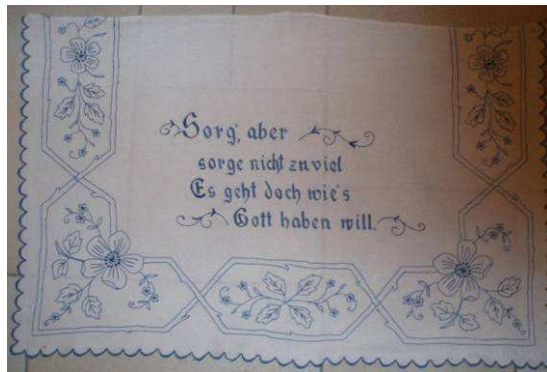 Sorg', aber
sorge nicht zuviel
Es geht doch wie's
Gott haben will.